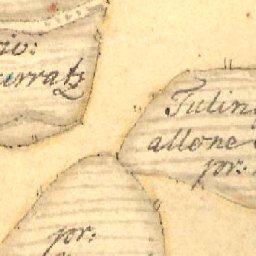 iv:
errats
Tulin
allone
pr:
pr: